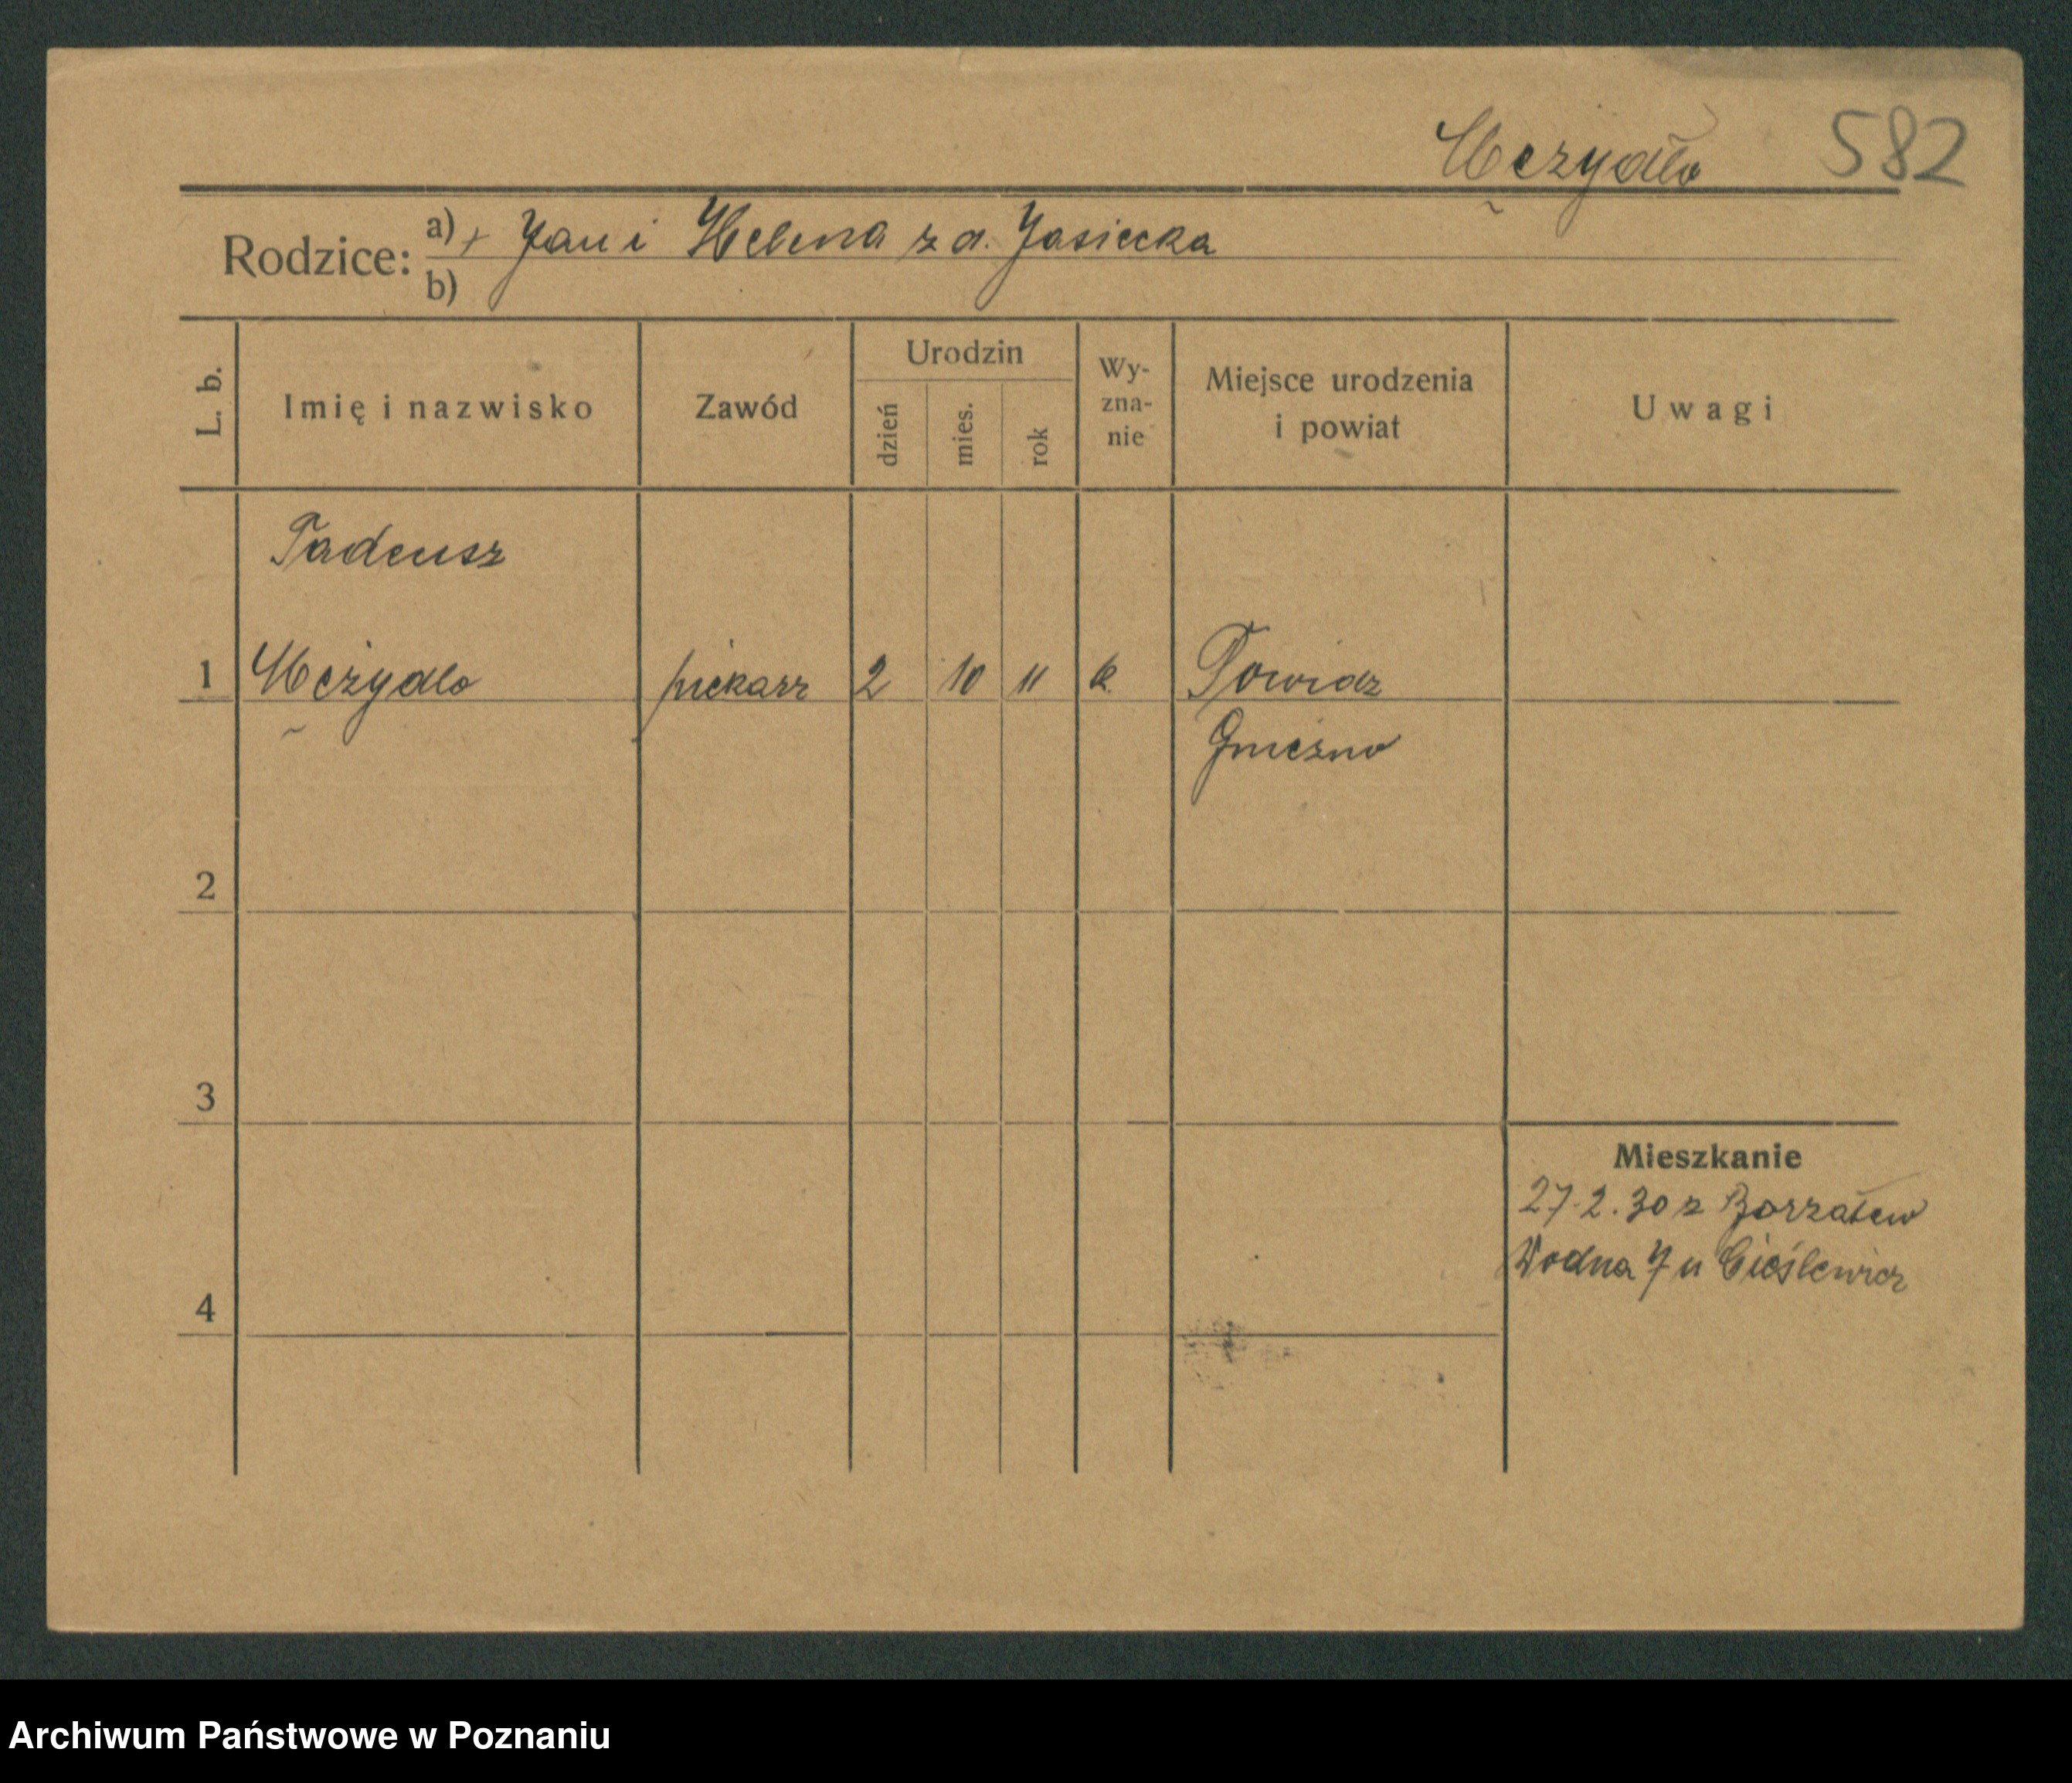 Mężydło 582
Rodzice: a) + Jan i Helena z d. Jasiecka
b)
L. b. Imię i nazwisko Zawód Urodzin dzień mies. rok Wy-zna-nie Miejsce urodzenia i powiat Uwagi
Tadeusz
1 Mężydło piekarz 2 10 11 k. Powidz
Gniezno
2
3
Mieszkanie
27.2.30 z
Wodna 7 u Cieślewicz
4
Archiwum Państwowe w Poznaniu